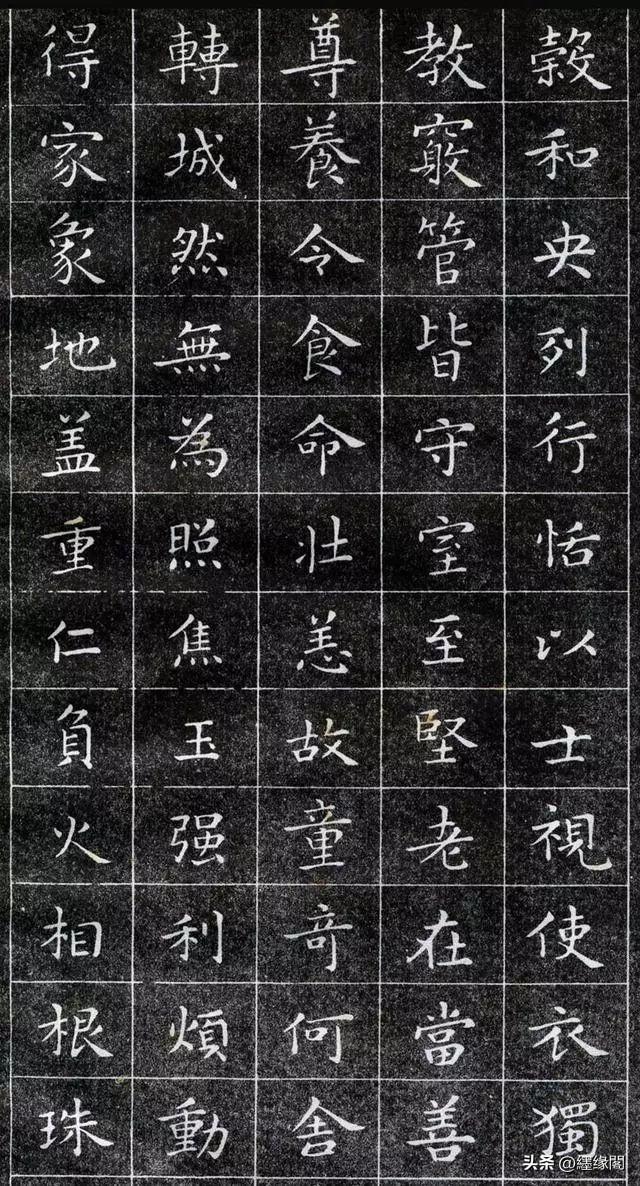 穀和央列行恬以士視使衣獨
教竅管皆守室至堅老在當善
尊養令食命壯恙故童奇何舍
轉城然無為照焦玉强利煩動
得家象地盖重仁負火相根珠
头条 @缘閣